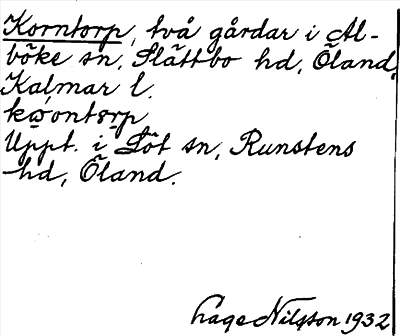 Korntorp, två gårdar i Al-
böke sn, Slättbo hd, Öland,
Kalmar l.
Uppt. i Löt sn, Runstens
hd, Öland.
Lage Nilsson 1932